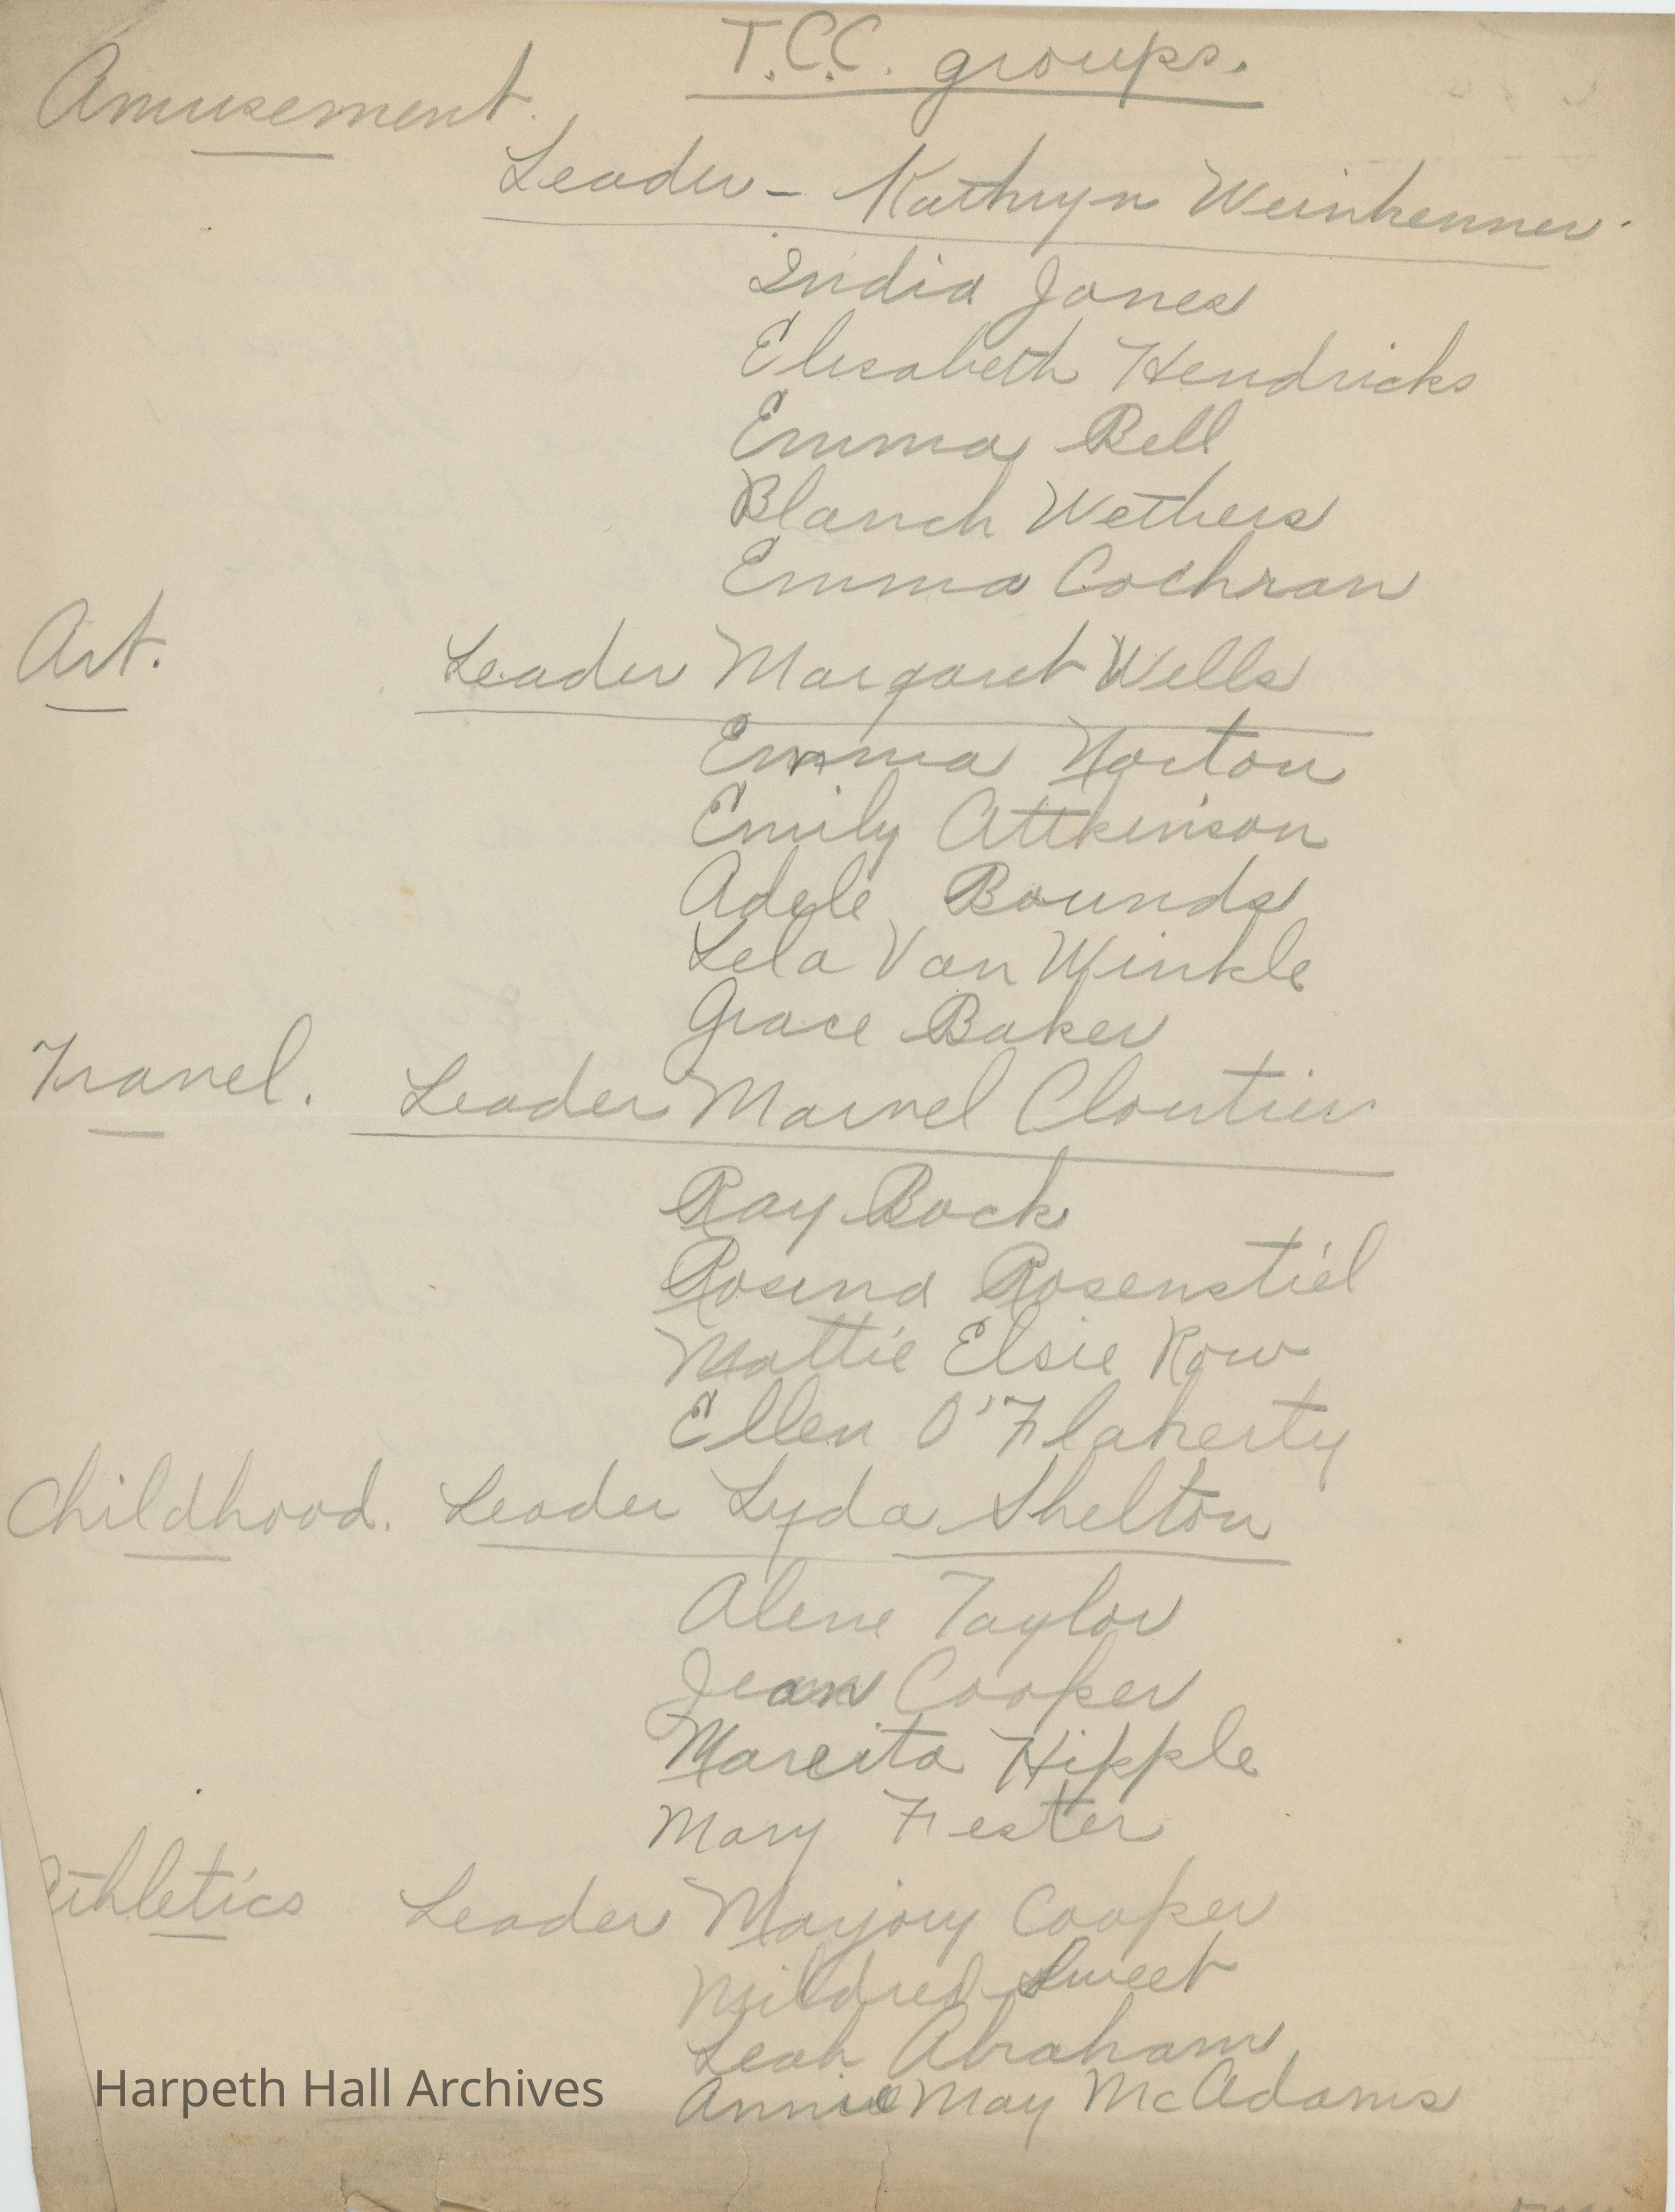 T.C.C. groups.
Amusement.
Leader - Kathryn Weinkenner.
India Jones
Elisabeth Hendricks
Emma Bell
Blanch Wethers
Emma Cochran
Art. Leader Margaret Wells
Emma Norton
Emily Attkinson
Adele Bounds
Lela Van Winkle
Grace Baker
Travel. Leader Marvel Cloutier
Ray Bock
Rosina Rosenstiel
Mattie Elsie Row
Ellen O'Flaherty
Childhood. Leader Lyda Shelton
Alene Taylor
Jean Cooper
Marcita Hipple
Mary Fester
Athletics Leader Marjory Cooper
Mildred Sweet
Leah Abraham
Annie May McAdams
Harpeth Hall Archives